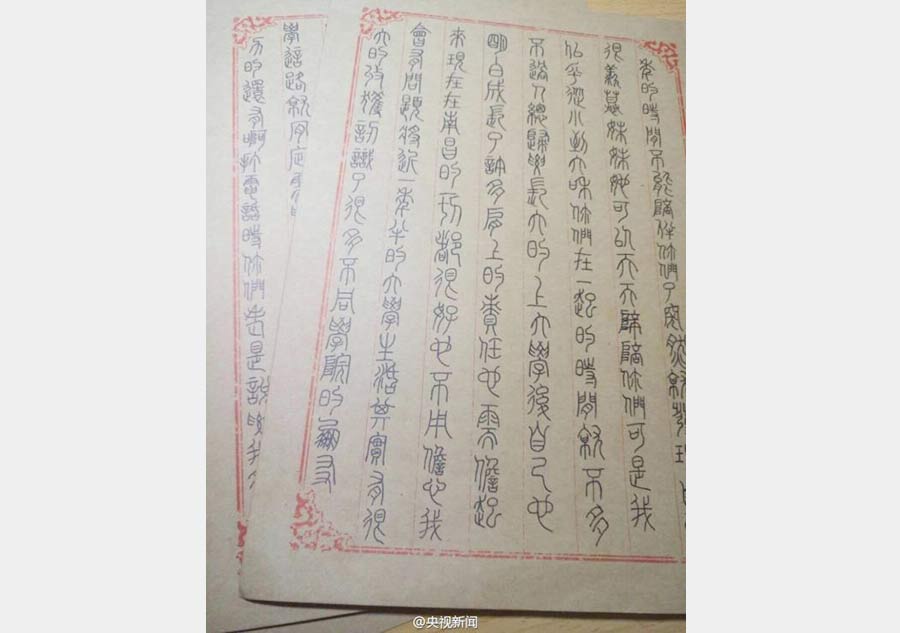 年的時間不能陪伴你們了突然就發現
很羨慕妹妹她可以天天陪你們可是我
似乎從小到大和你們在一起的時間就不多
不過人總歸要長大的上大學後自己也
明白成長了許多肩上的責任也需擔起
來現在在南昌的切都很好也不用擔心我
會有問題將近一年半的大學生活其實有很
大的收獲認識了很多不同學院的朋友
學這路就
方的還有啊打電話時你們老是說我
@央视新闻